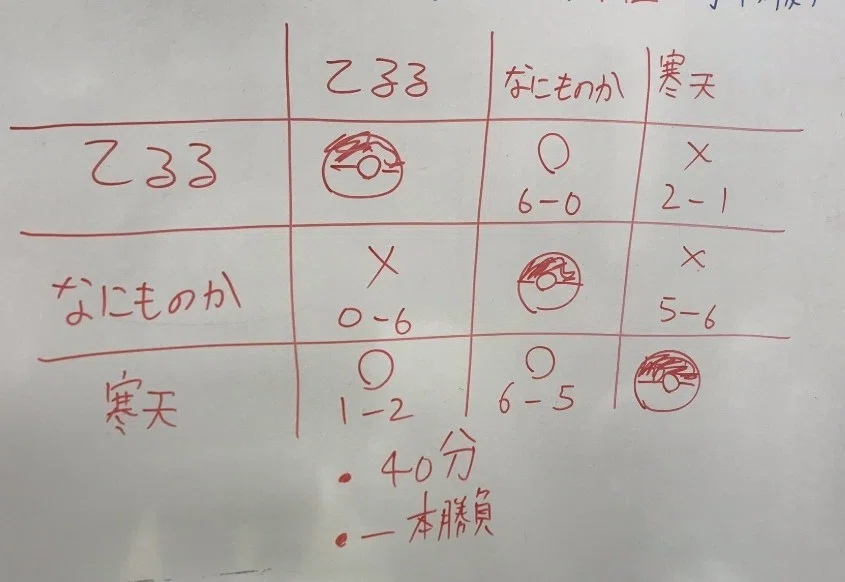 てるる なにものか 寒天
てるる ○ ×
6-0 2-1
なにものか × ×
0-6 5-6
寒天 ○ ○
1-2 6-5
・40分
・一本勝負